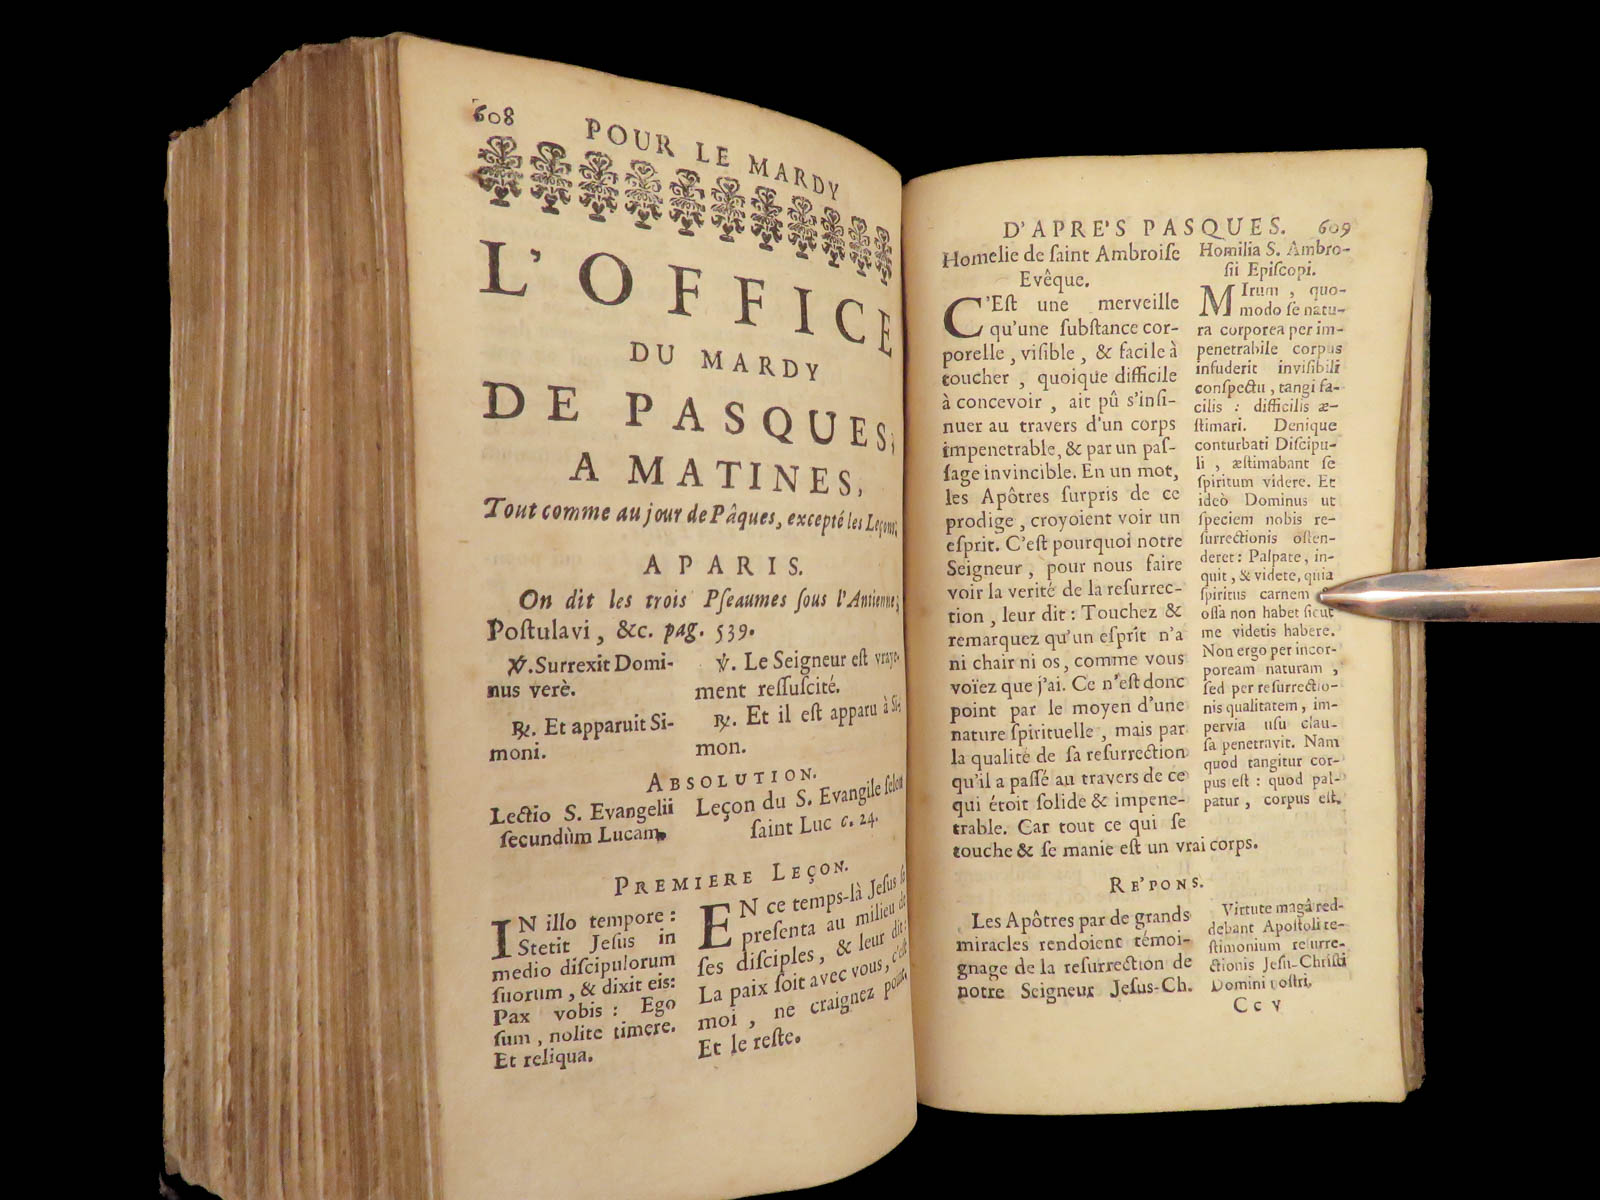 608
POUR LE MARDY
L'OFFICE
DU MARDY
DE PASQUES,
A MATINES,
Tout comme au jour de Pâques, excepté les Leçons;
A PARIS.
On dit les trois Pſeaumes ſous l'Antienne;
Poſtulavi, &c. pag. 539.
℣. Surrexit Domi-
nus verè.
℟. Et apparuit Si-
moni.
℣. Le Seigneur eſt vraye-
ment reſſuſcité.
℟. Et il eſt apparu à Si-
mon.
ABSOLUTION.
Lectio S. Evangelii
ſecundùm Lucam.
Leçon du S. Evangile ſelon
ſaint Luc c. 24.
PREMIERE LEÇON.
IN illo tempore :
Stetit Jeſus in
medio diſcipulorum
ſuorum, & dixit eis:
Pax vobis : Ego
ſum, nolite timere.
Et reliqua.
EN ce temps-là Jeſus ſe
preſenta au milieu de
ſes diſciples, & leur dit:
La paix ſoit avec vous, c'eſt
moi, ne craignez point.
Et le reſte.
D'APRE'S PASQUES. 609
Homelie de ſaint Ambroiſe
Evêque.
C'Eſt une merveille
qu'une ſubſtance cor-
porelle, viſible, & facile à
toucher, quoique difficile
à concevoir, ait pû s'inſi-
nuer au travers d'un corps
impenetrable, & par un paſ-
ſage invincible. En un mot,
les Apôtres ſurpris de ce
prodige, croyoient voir un
eſprit. C'eſt pourquoi notre
Seigneur, pour nous faire
voir la verité de la reſurrec-
tion, leur dit : Touchez &
remarquez qu'un eſprit n'a
ni chair ni os, comme vous
voïez que j'ai. Ce n'eſt donc
point par le moyen d'une
nature ſpirituelle, mais par
la qualité de ſa reſurrection
qu'il a paſſé au travers de ce
qui étoit ſolide & impene-
trable. Car tout ce qui ſe
touche & ſe manie eſt un vrai corps.
Homilia S. Ambro-
ſii Epiſcopi.
MIrum, quo-
modo ſe natu-
ra corporea per im-
penetrabile corpus
infuderit inviſibili
conſpectu, tangi fa-
cilis : difficilis æ-
ſtimari. Denique
conturbati Diſcipu-
li, æſtimabant ſe
ſpiritum videre. Et
ideò Dominus ut
ſpeciem nobis re-
ſurrectionis oſten-
deret : Palpate, in-
quit, & videte, quia
ſpiritus carnem
oſſa non habet ſicut
me videtis habere.
Non ergo per incor-
poream naturam,
ſed per reſurrectio-
nis qualitatem, im-
pervia uſu clau-
ſa penetravit. Nam
quod tangitur cor-
pus eſt : quod pal-
patur, corpus eſt.
RE'PONS.
Les Apôtres par de grands
miracles rendoient témoi-
gnage de la reſurrection de
notre Seigneur Jeſus-Ch.
Virtute magâ red-
debant Apoſtoli te-
ſtimonium reſurre-
ctionis Jeſu-Chriſti
Domini noſtri.
Cc v